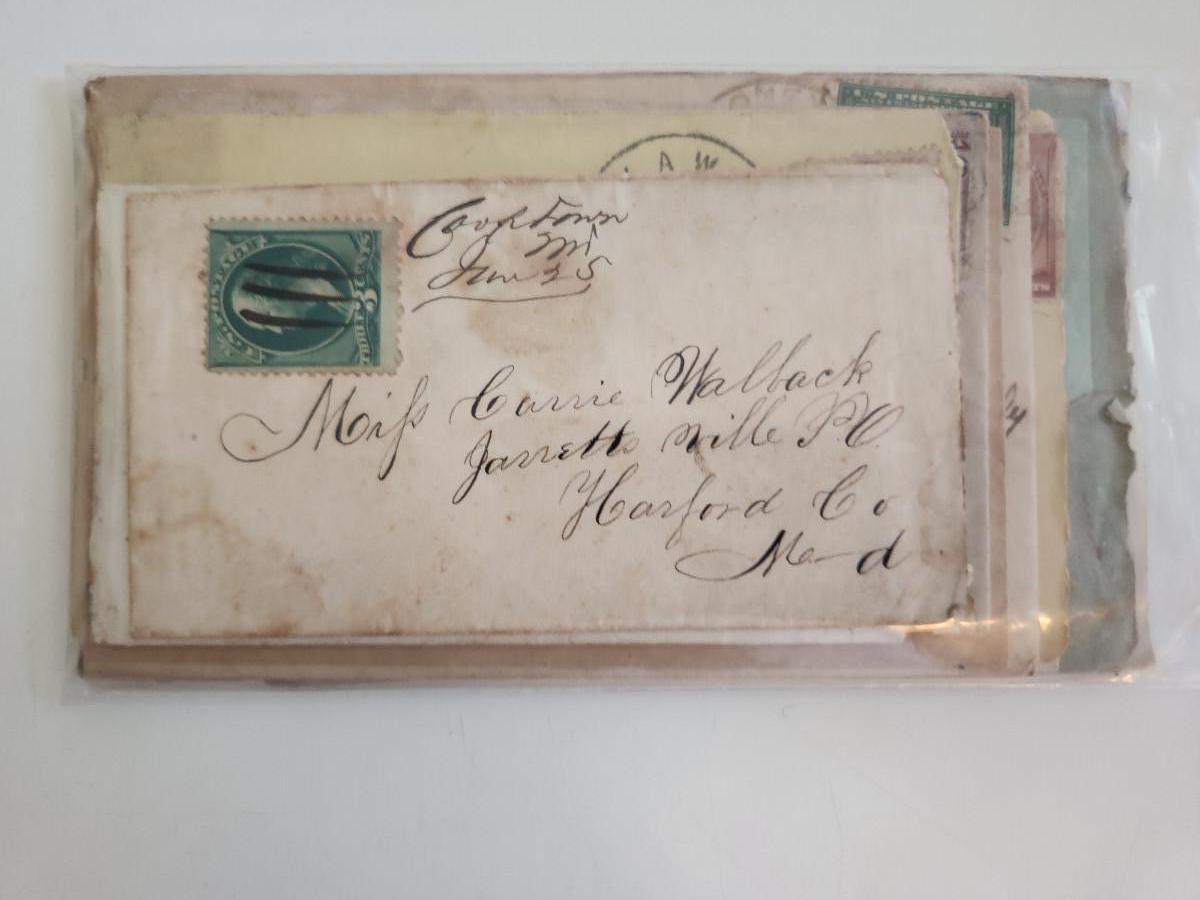 U.S. POSTAGE
THREE 3 CENTS
Cooptown
Md
Jun 25
Miss Carrie Walback
Jarretts ville P.O.
Harford Co
Md
24